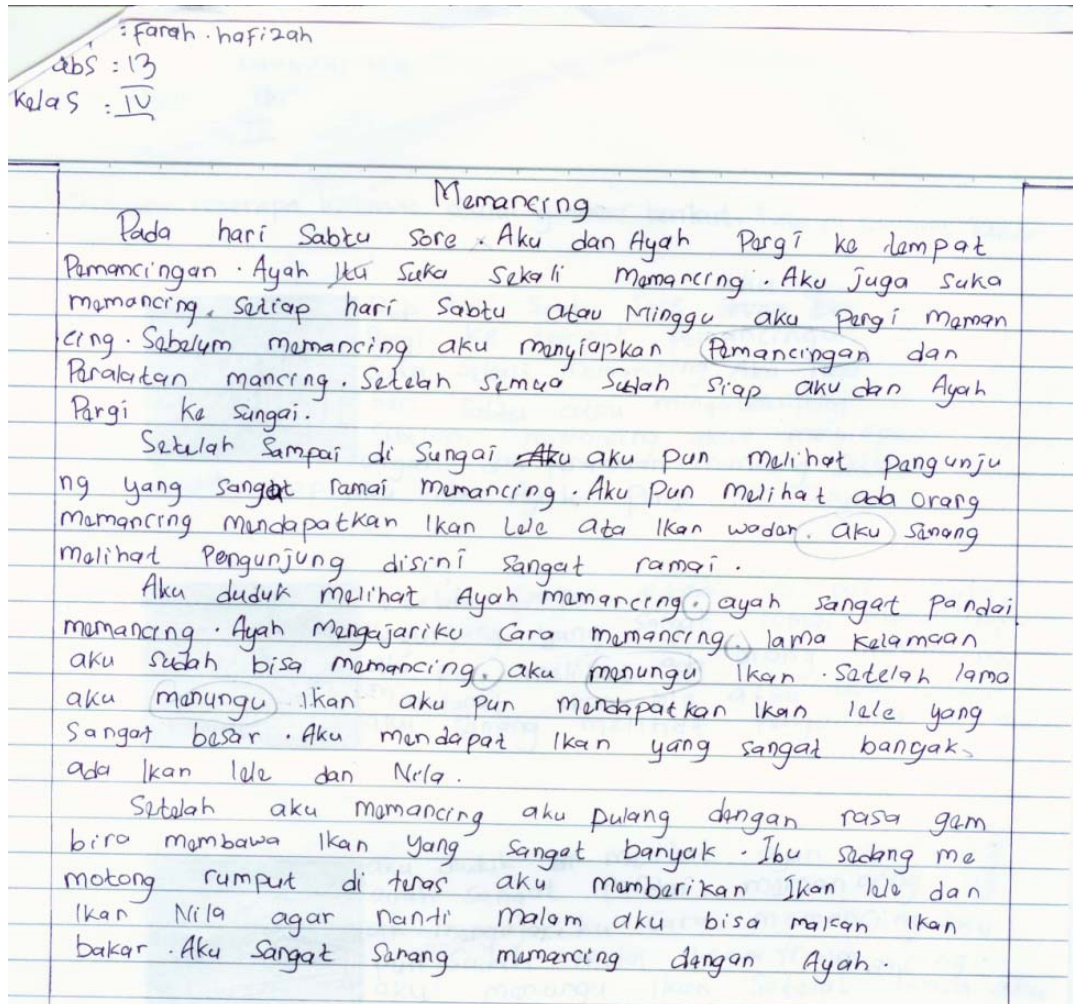 : Farah . hafizah
abs : 13
Kelas : IV
Memancing
Pada hari Sabtu sore Aku dan Ayah Pergi ke tempat
Pemancingan . Ayah itu suka sekali memancing . Aku juga suka
memancing . setiap hari Sabtu atau Minggu aku pergi meman
cing . Sebelum memancing aku menyiapkan Pemancingan dan
Peralatan mancing . Setelah semua sudah siap aku dan Ayah
Pergi ke sungai .
Setelah sampai di sungai aku pun melihat pengunju
ng yang sangat ramai memancing . Aku pun melihat ada orang
memancing mendapatkan Ikan lele ata Ikan wader . aku senang
melihat Pengunjung disini sangat ramai .
Aku duduk melihat Ayah memancing . ayah sangat pandai
memancing . Ayah mengajariku cara memancing . lama kelamaan
aku sudah bisa memancing . aku menungu Ikan . setelah lama
aku menungu Ikan aku pun mendapatkan Ikan lele yang
sangat besar . Aku mendapat Ikan yang sangat bangak
ada Ikan lele dan Nila .
Setelah aku memancing aku pulang dengan rasa gem
bira membawa Ikan yang sangat banyak . Ibu sedang me
motong rumput di teras aku memberikan Ikan lele dan
Ikan Nila agar nanti malam aku bisa makan Ikan
bakar . Aku sangat senang memancing dengan Ayah .